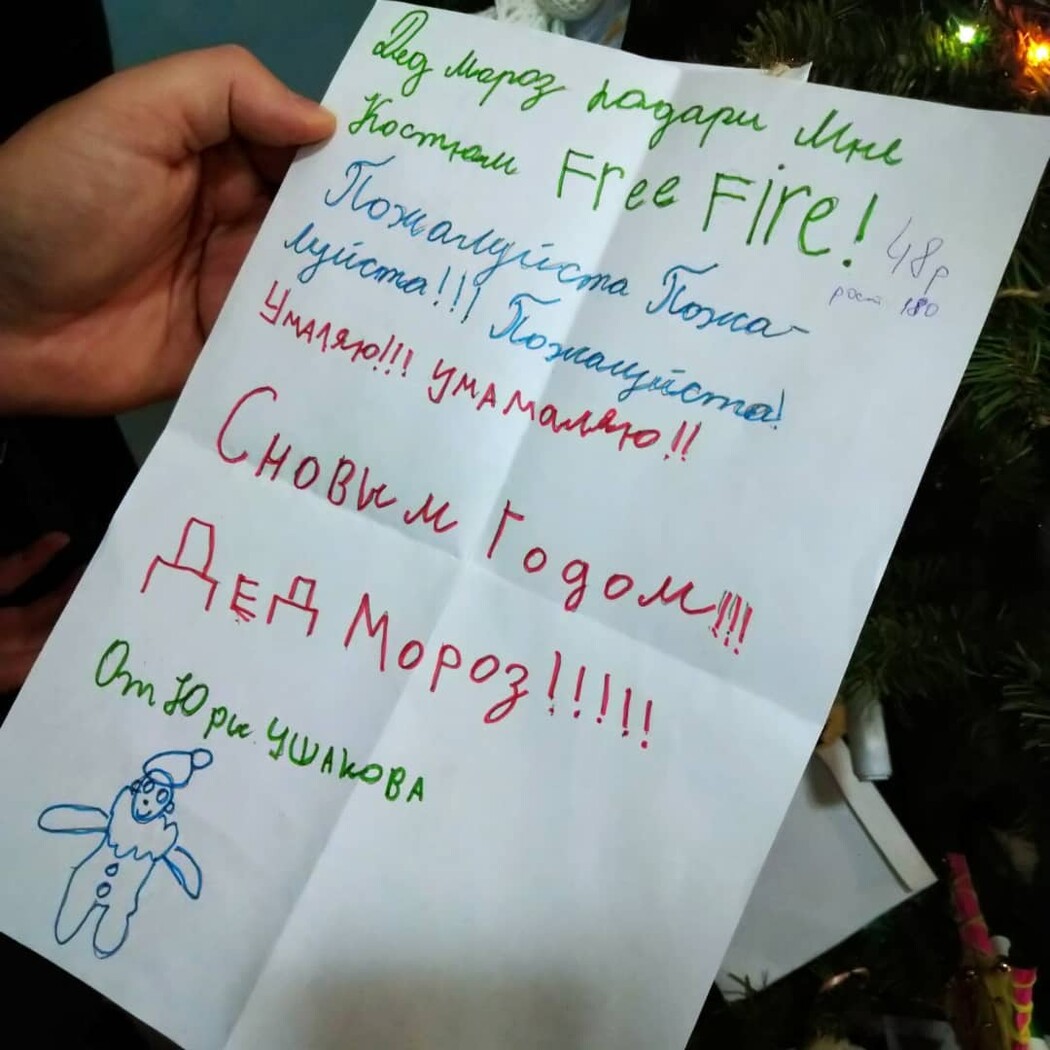 Дед Мороз падари Мне
Костюм Free Fire!
48р
рост 180
Пожалуйста Пожа-
луйста!!! Пожалуйста!
Умаляю!!! умамаляю!!
С новым Годом!!!
Дед Мороз!!!!!
От Юры Ушакова